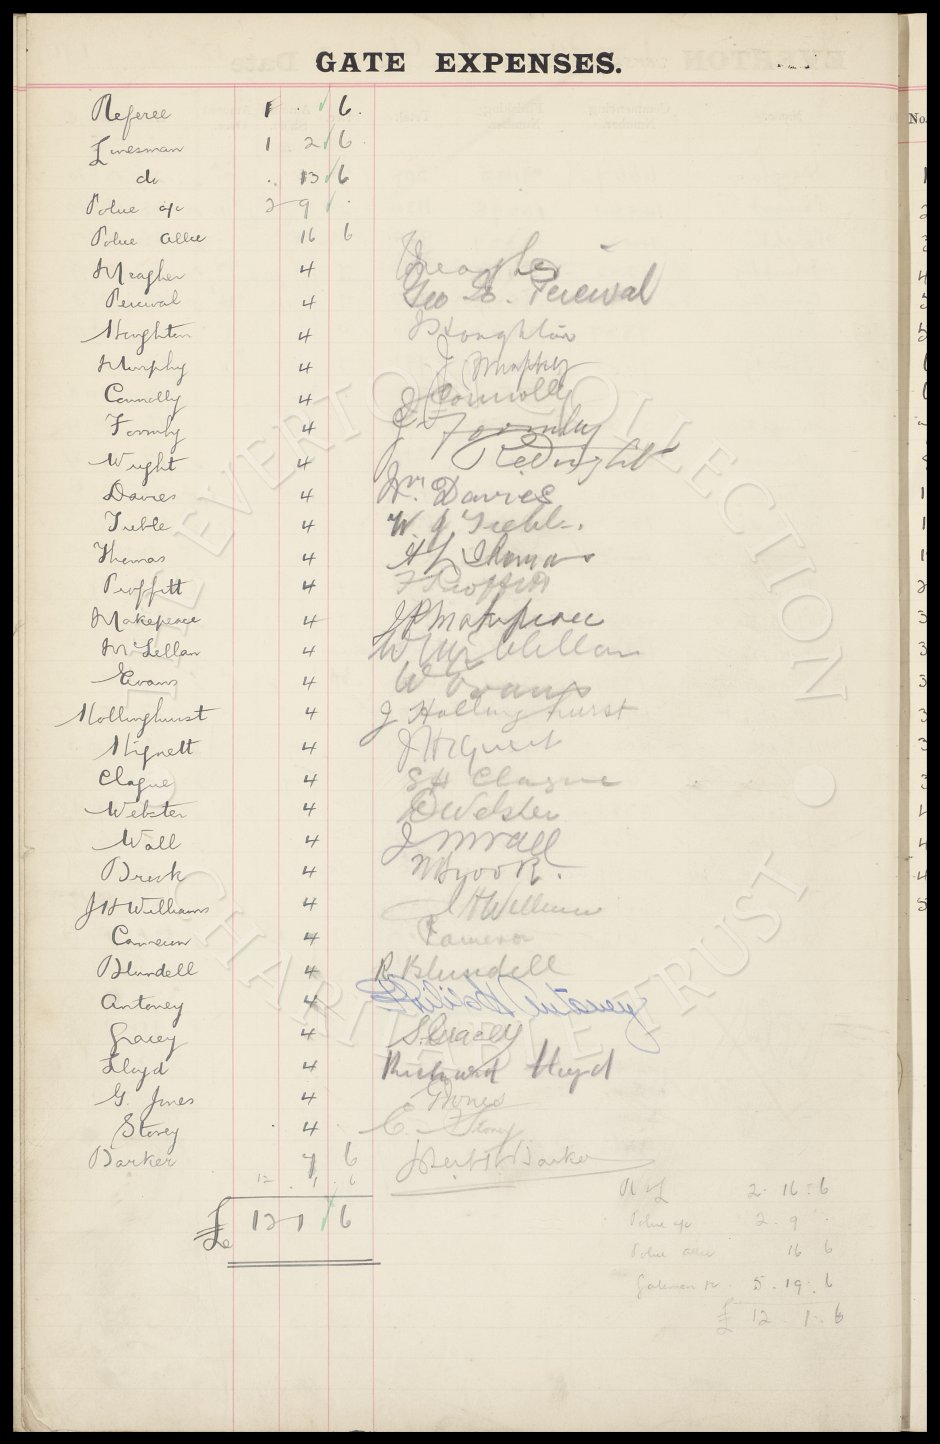 GATE EXPENSES.
Referee 1 . 6.
Linesman 1 2 6
do .. 13 6
Police a/c 2 9 .
Police allce 16 6
Meagher 4 Meagher
Percival 4 Geo Percival
Houghton 4 Houghton
Murphy 4 J Murphy
Connolly 4 J Connolly
Formby 4 J Formby
Wright 4
Davies 4 Wm. Davies
Treble 4 W. J Treble.
Thomas 4 Thomas
Proffitt 4 F Proffitt
Makepeace 4 Makepeace
McLellan 4 W McLellan
Evans 4 W Evans
Hollinghurst 4 J Hollinghurst
Hignett 4 J Hignett
Clague 4 S H Clague
Webster 4 Webster
Wall 4 J M Wall
Brook 4 Brook.
J H Williams 4 J H Williams
Cameron 4 Cameron
Blundell 4 R. Blundell
Antoney 4 Antoney
Gracey 4 S. Gracey
Lloyd 4 Richard Lloyd
G. Jones 4 Jones
Storey 4 C. Storey
Barker 7 6 Barker
12 . 1 . 6
£ 12 1 6
R & L 2. 16. 6
Police a/c 2. 9
Police allce 16 6
Gatemen 5. 19. 6
£ 12. 1. 6
THE EVERTON COLLECTION CHARITABLE TRUST
No.